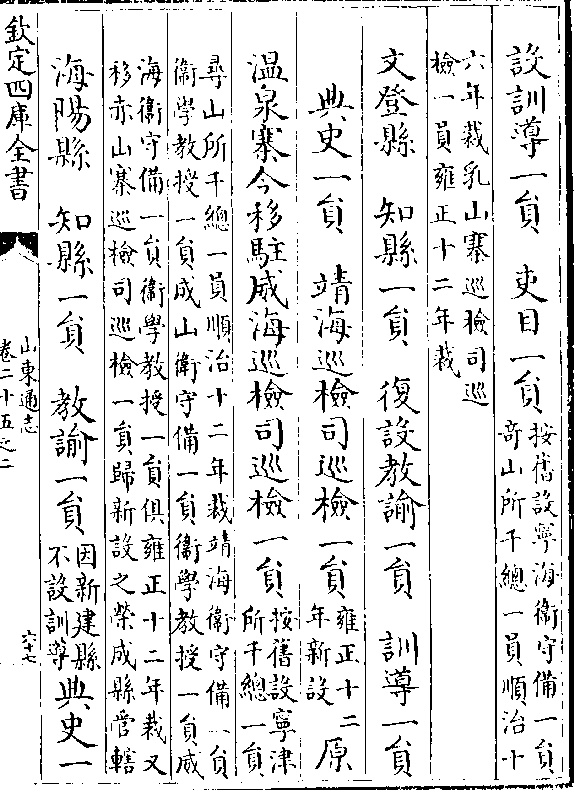 設訓導一貟　吏目一貟
按舊設寧海衛守備一貟
竒山所千總一員順治十
六年裁乳山寨巡檢司巡
檢一員雍正十二年裁
文登縣　知縣一貟　復設教諭一貟　訓導一貟
典史一貟　靖海巡檢司巡檢一貟
雍正十二
年新設
原
温泉寨今移駐威海巡檢司巡檢一貟
按舊設寧津
所千總一貟
尋山所千總一員順治十二年裁靖海衛守備一貟
衛學教授一貟成山衛守備一貟衛學教授一貟威
海衛守備一貟衛學教授一貟俱雍正十二年裁又
移赤山寨巡檢司巡檢一貟歸新設之榮成縣管轄
海陽縣　知縣一貟　教諭一貟
因新建縣
不設訓導
典史一
欽定四庫全書
山東通志
卷二十五之二
六十七